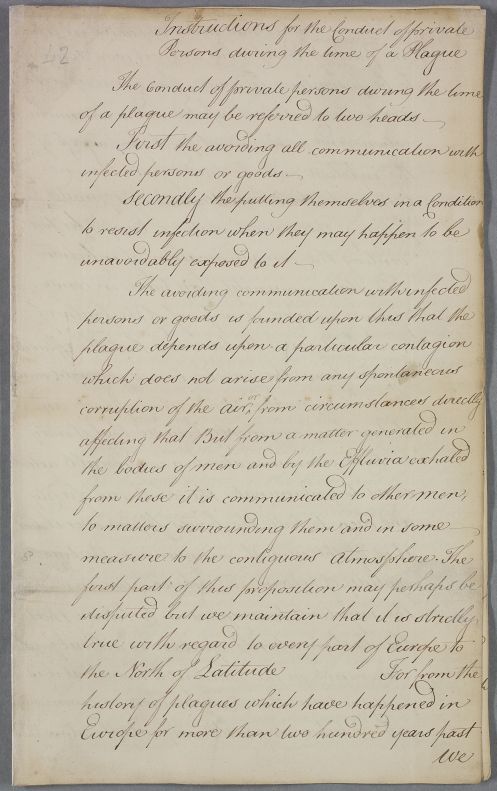 42
Instructions for the Conduct of private
Persons during the time of a Plague
The Conduct of private persons during the time
of a plague may be referred to two heads —
First the avoiding all communication with
infected persons or goods —
Secondly the putting themselves in a Condition
to resist infection when they may happen to be
unavoidably exposed to it —
The avoiding communication with infected
persons or goods is founded upon this that the
plague depends upon a particular contagion
which does not arise from any spontaneous
corruption of the air, or from circumstances directly
affecting that But from a matter generated in
the bodies of men and by the Effluvia exhaled
from these it is communicated to other men,
to matters surrounding them and in some
measure to the contiguous Atmosphere. The
first part of this proposition may perhaps be
disputed but we maintain that it is strictly
true with regard to every part of Europe to
the North of Latitude For from the
history of plagues which have happened in
Europe for more than two hundred years past
We